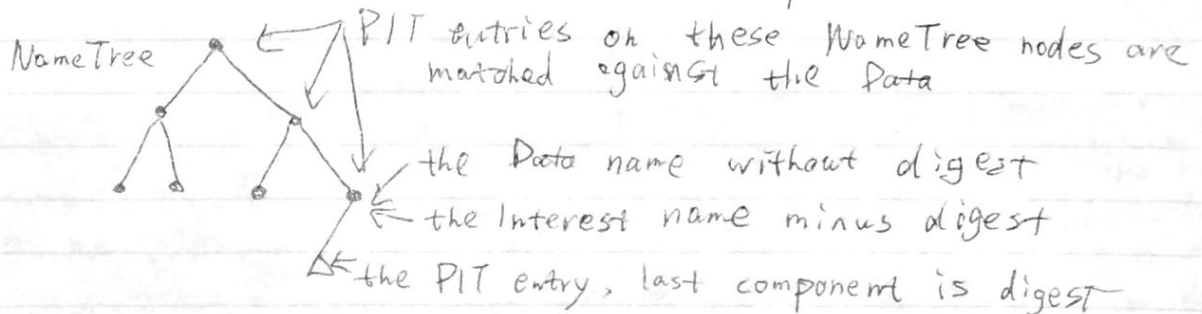 NameTree
PIT entries on these NameTree nodes are
matched against the Data
the Data name without digest
the Interest name minus digest
the PIT entry, last component is digest